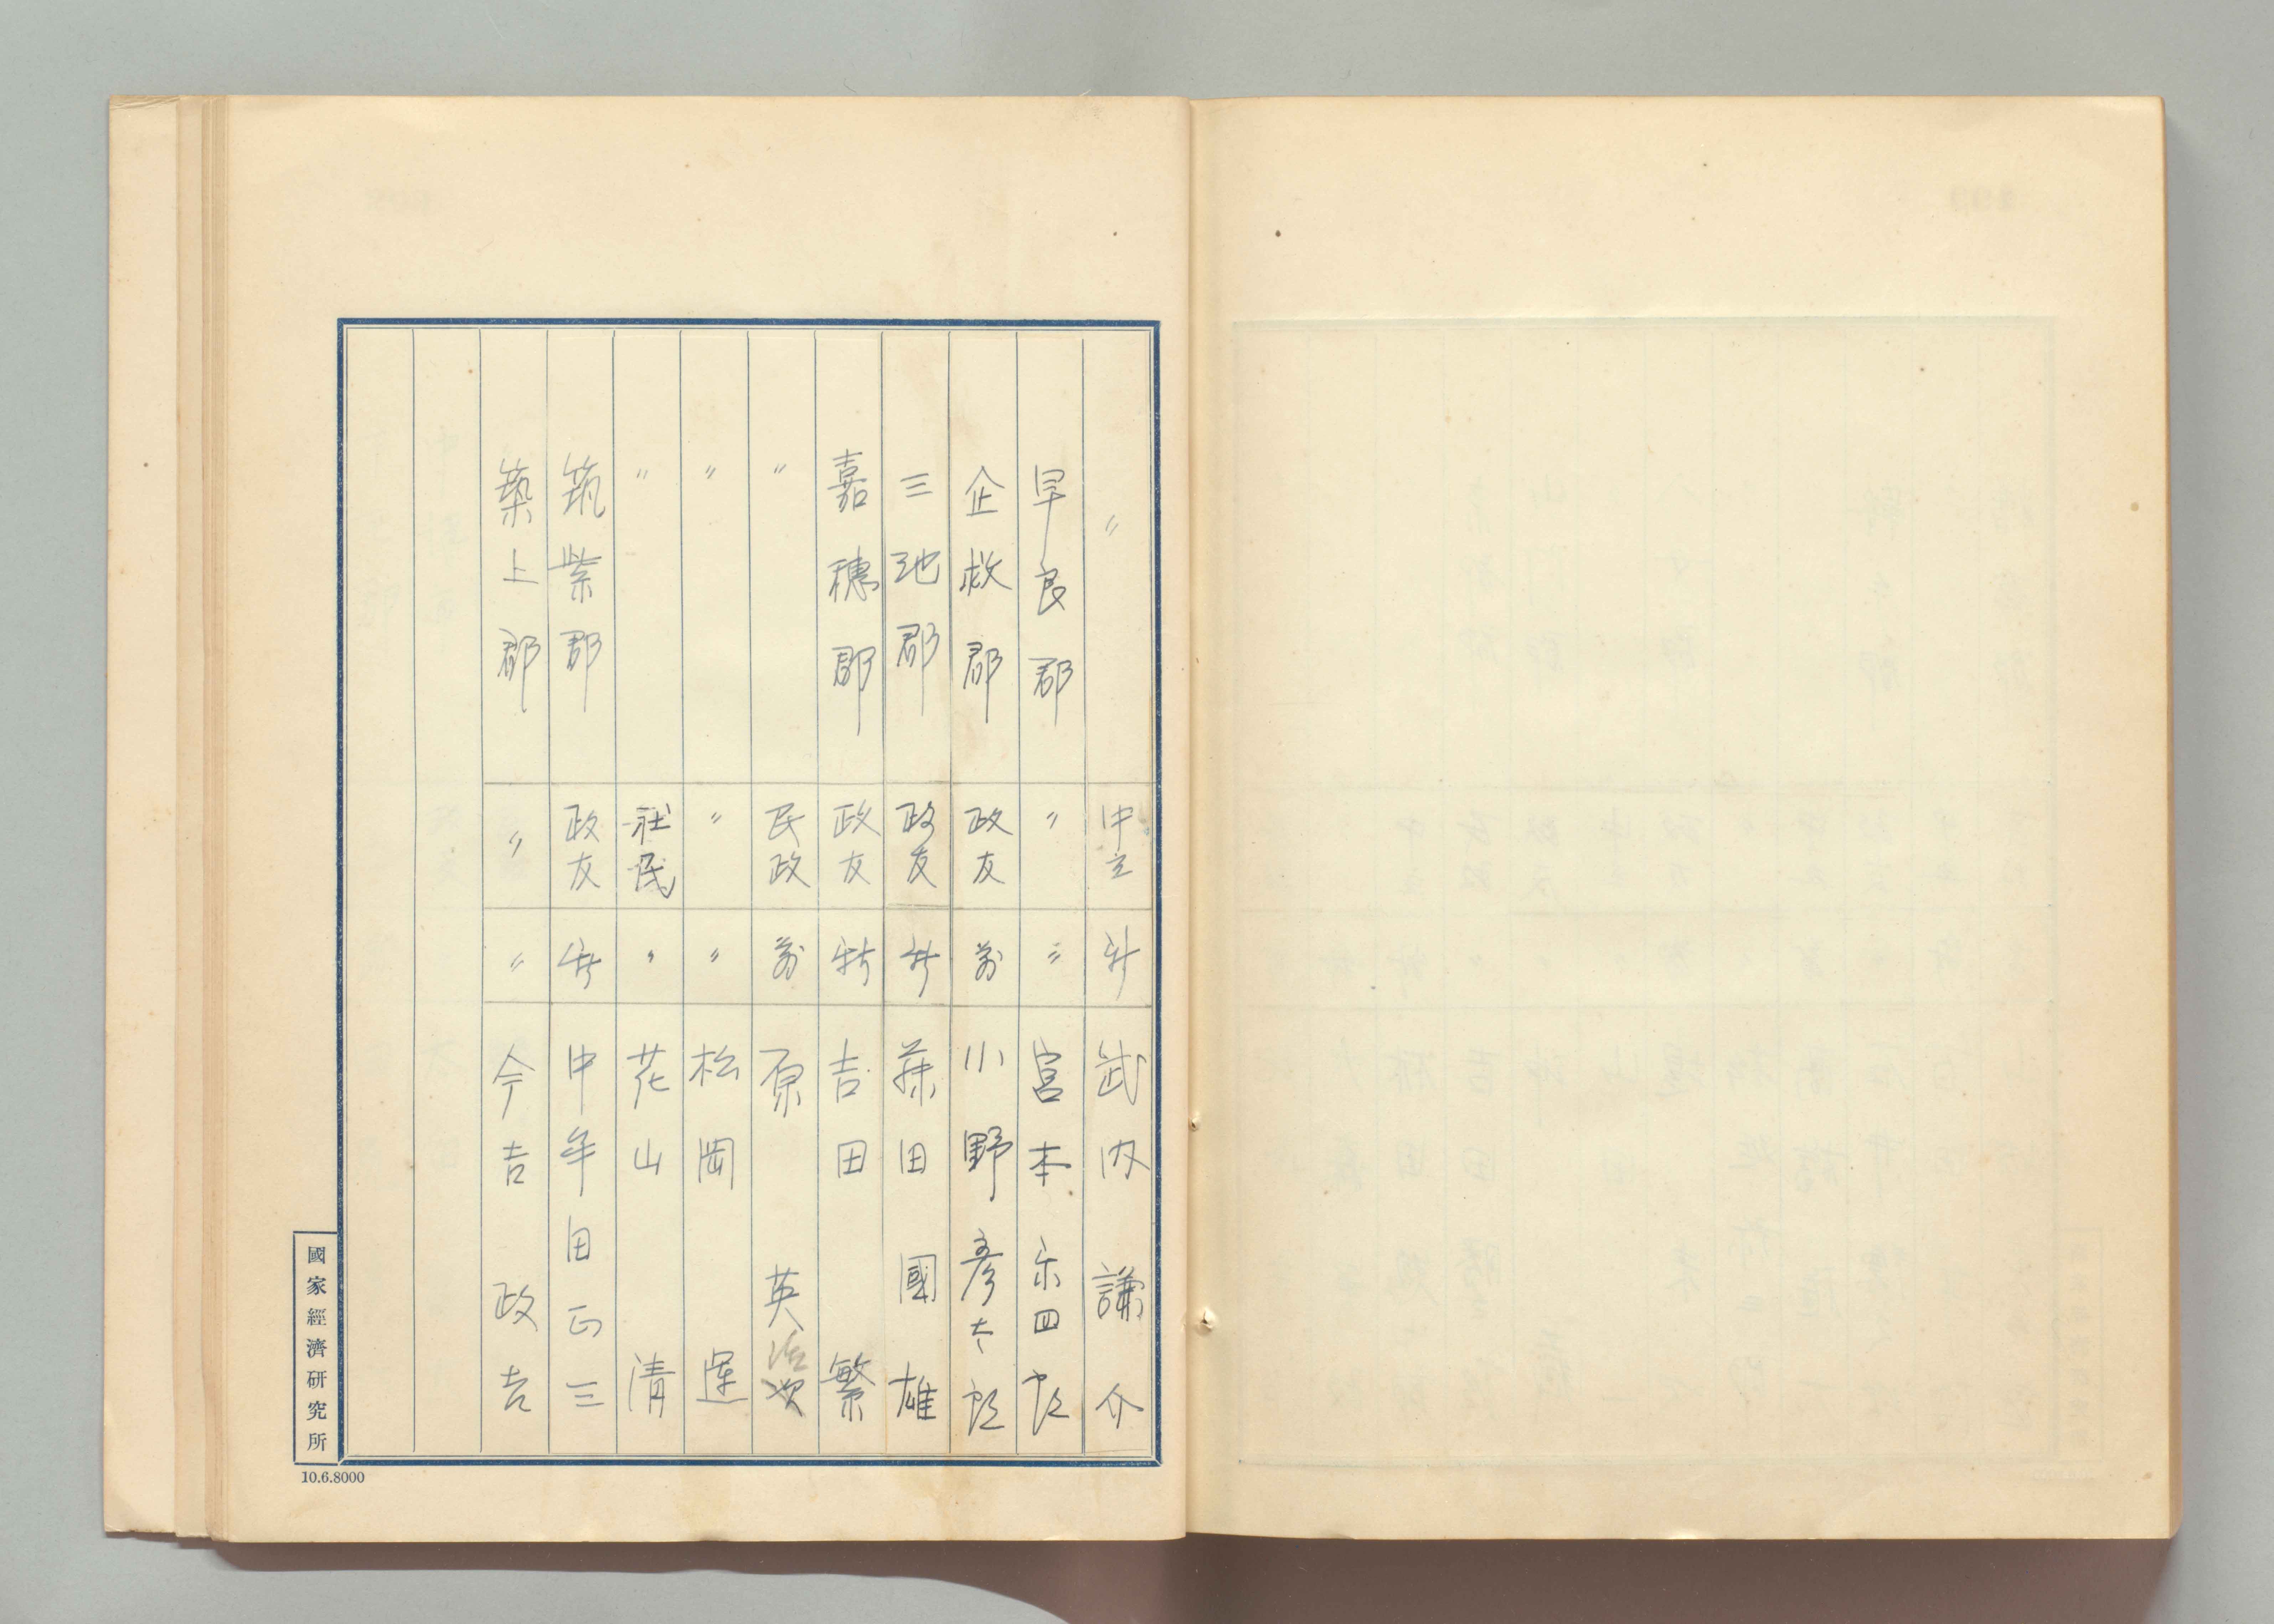 〃 中立 新 武内謙介
早良郡 〃 〃 宮本楽四郎
企救郡 政友 前 小野彦太郎
三池郡 政友 新 藤田國雄
嘉穂郡 政友 新 吉田繁
〃 民政 前 原英治
〃 〃 〃 松岡運
〃 社民 〃 花山清
筑紫郡 政友 新 中牟田正三
築上郡 〃 〃 今吉政吉
國家經濟研究所
10.6.8000